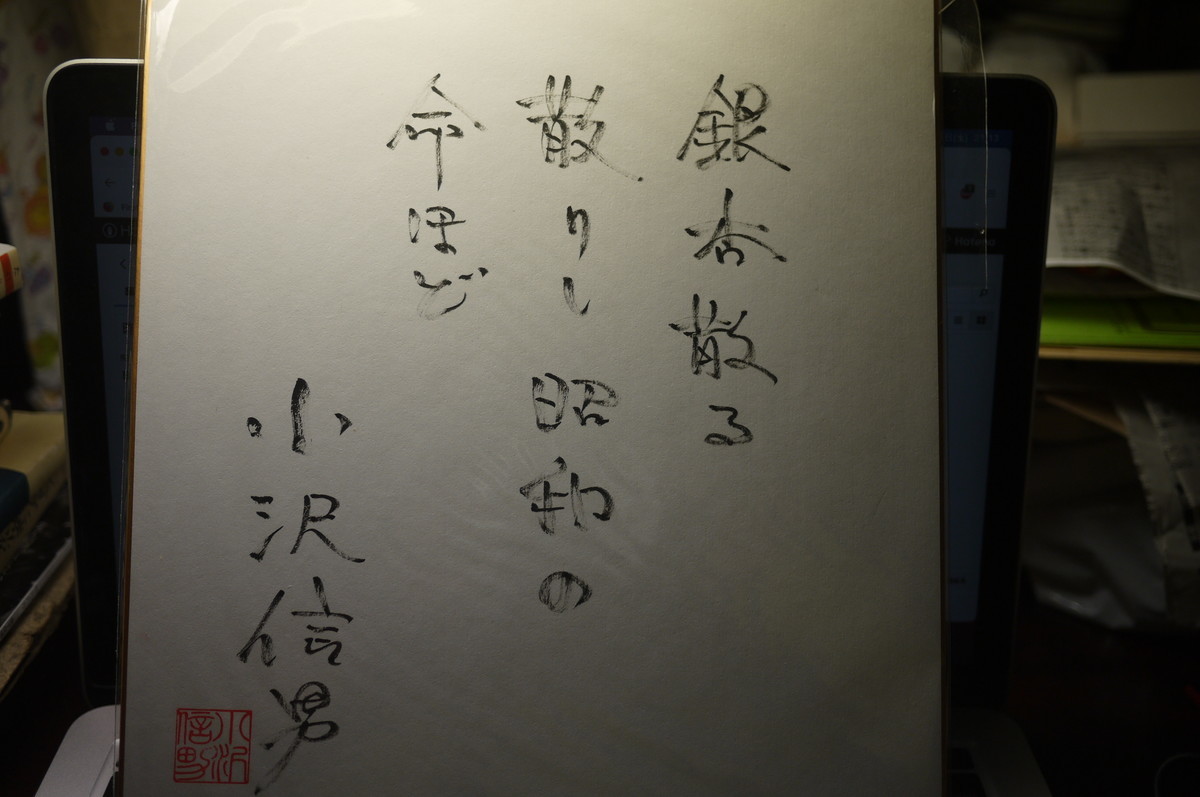 銀杏散る
散りし昭和の
命ほど
小沢信男
小沢
信男